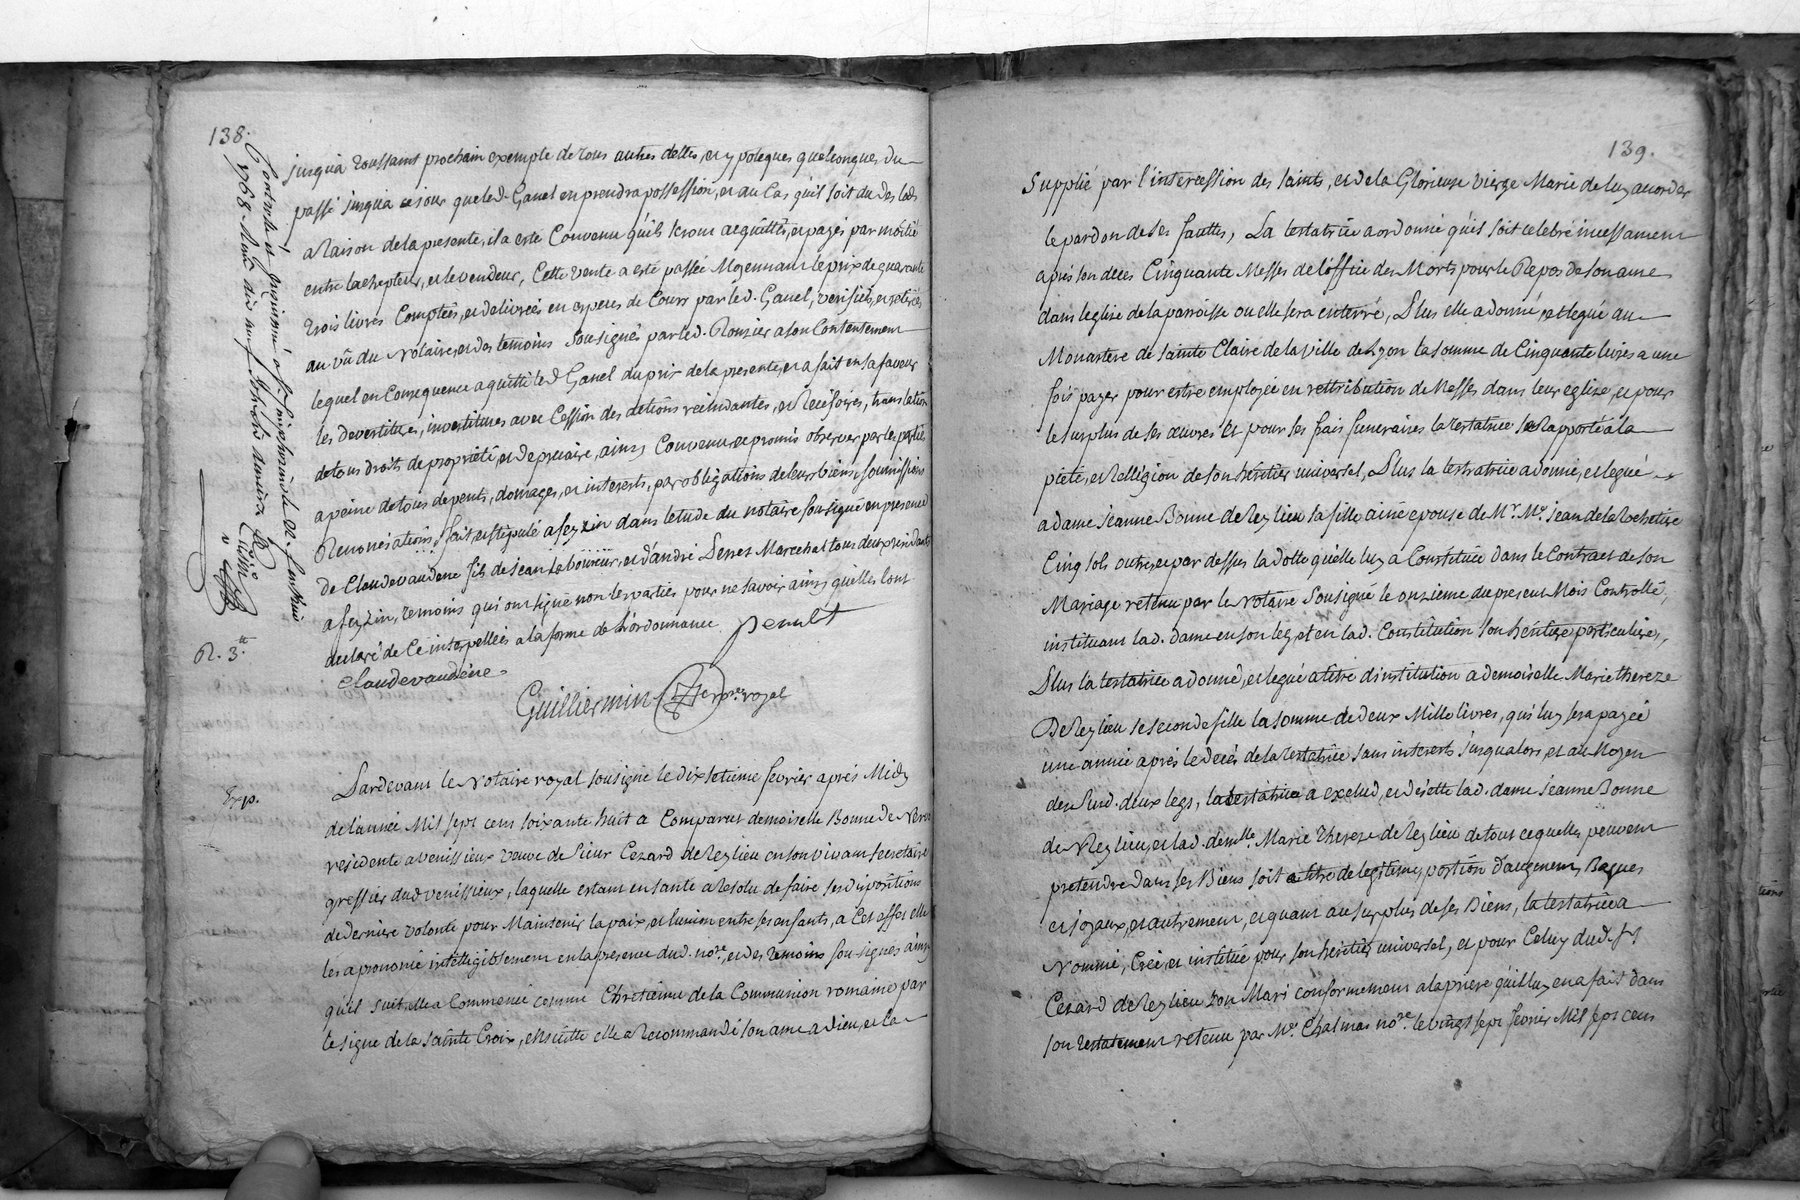 138.
jusqua toussaint prochain exempte de tous autres dettes, et ypoteques quelconques du
passé jusqua ce jour que led. Ganel en prendra possession, et au cas quil soit du des lods
a Raison de la presente, il a esté Convenu quils seront acquittés, et payés par moitié
entre lachepteur, et le vendeur, Cette vente a esté passée Moyennant le prix de quarante
trois livres Comptées, et delivrées en especes de Cours par led. Ganel, verifiées, et retirées
au vû du Notaire, et des temoins sousignés par led. Rouzier a son Contentement
lequel en Consequence a quitté led Ganel du prix de la presente, et a fait en sa faveur
les devestitures, investitures avec Cession des actions rescindantes, et Recisoires, translation
de tous droits de propriété, et de precaire, ainsy Convenu, et promis observer par les parties
a peine de tous depents, domages, et interests, par obligations de leurs biens, soumissions
Renonciations, fait et stipulé a feyzin dans letude du notaire sousigné en presence
de Claude vaudene fils de Jean laboureur, et d'andré Perret Marechal tous deux residants
a feyzin, temoins qui ont signé non les parties pour ne savoir ainsy quelles l'ont
declaré de Ce interpellées a la forme de l'ordonnance. perret
Claude vaudene
Guilliermin no.re royal
Controllé et
1768. Reçu dix neuf sols
R. 3.tt
Exp.
Pardevant le Notaire royal sousigné le dix setième fevrier après Midy
de l'année Mil sept cent soixante huit a Comparut demoiselle Bonne de
residente a venissieux veuve de sieur Cezard de Reylieu en son vivant secretaire
greffier dud venissieux, laquelle estant en santé a Resolu de faire ses dispositions
de derniere volonté pour Maintenir la paix, et lunion entre ses enfants, a Cet effet elle
les a prononcé intelligiblement en la presence dud. nore, et des temoins sousignés ainsy
quil suit elle a Commencé comme Chretienne de la Communion romaine par
le signe de la sainte Croix, ensuitte elle a Recommandé son ame a dieu, et la
139.
supplié par l'intercession des saints, et de la Glorieuse vierge Marie de luy accorder
le pardon de ses fauttes, La testatrice a ordonné qu'il soit celebré incessament
après son deces Cinquante Messes de loffice des Morts pour le Repos de son ame
dans leglise de la parroisse ou elle sera enterré, Plus elle a donné, et legué au
Monastere de sainte Claire de la ville de Lyon la somme de Cinquante livres a une
fois payer pour estre employée en rettribution de Messes dans leur eglise, et pour
le surplus de ses œuvres et pour ses frais funeraires la testatrice se Rapporté a la
pieté, et Relligion de son héritier universel, Plus la testratrice a donné, et legué
a dame Jeanne Bonne de Reylieu sa fille ainé epouse de Mr. Me. Jean de la Rochette
Cinq sols outre, et par dessus la dotte qu'elle luy a Constituée dans le Contract de son
Mariage retenu par le notaire Sousigné le onzieme du present Mois Controllé,
instituant lad. dame en son leg, et en lad. Constitution son héritiere particuliere,
Plus la testatrice a donné, et legué a titre d'institution a demoiselle Marie thereze
De Reylieu se seconde fille la somme de deux Mille livres, qui luy sera payée
une année après le decés de la testatrice sans interests jusqualors, et au Moyen
des susd. deux legs, la testatrice a exclud, et deietté lad. dame Jeanne Bonne
de Reylieu, et lad. demlle. Marie Thereze de Reylieu de tout ce quelles peuvent
pretendre dans ses Biens soit a titre de legitime, portion d'augment, Bagues
et Joyaux, et autrement, et quant au surplus de ses Biens, la testatrice a
Nommé, Creé et institué pour son héritier universel, et pour Celuy dud. sr
Cezard de Reylieu son Mari conformement a la priere quil luy en a fait dans
son testatement retenu par Me. Chalmas nore. le vingt sept fevrier Mil sept cent